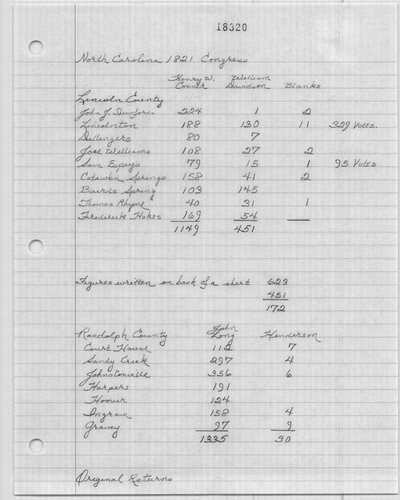 18320
North Carolina 1821 Congress
Henry W. Conner William Davidson Blanks
Lincoln County
John J. 224 1 2
Lincolnton 188 130 11 329 Votes.
Dellingers 80 7
Joel Williams 108 27 2
Sam Espeys 79 15 1 95 Votes
Catawba Springs 158 41 2
Bairds Spring 103 145
Thomas Rhyne 40 31 1
Frederick Hokes 169 54
1149 451
Figures written on back of a sheet 623
451
172
Randolph County John Long Henderson
Court House 112 7
Sandy Creek 297 4
Johnstonville 356 6
Harpers 191
Hoover 124
Ingram 158 4
Gravey 97 9
1335 30
Original Returns